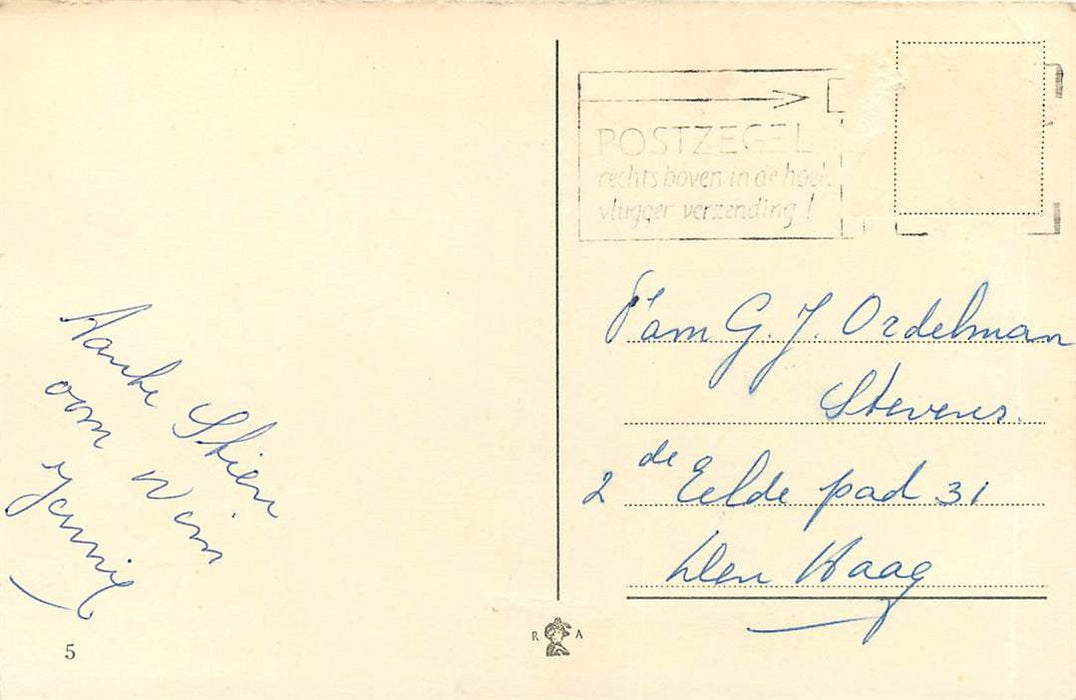 Tante Stien
oom Wim
Jannie
5
POSTZEGEL
rechts boven in de hoek
vlugger verzending!
Fam G. J. Ordelman
Stevens.
2 de Eelde pad 31
Den Haag
R A